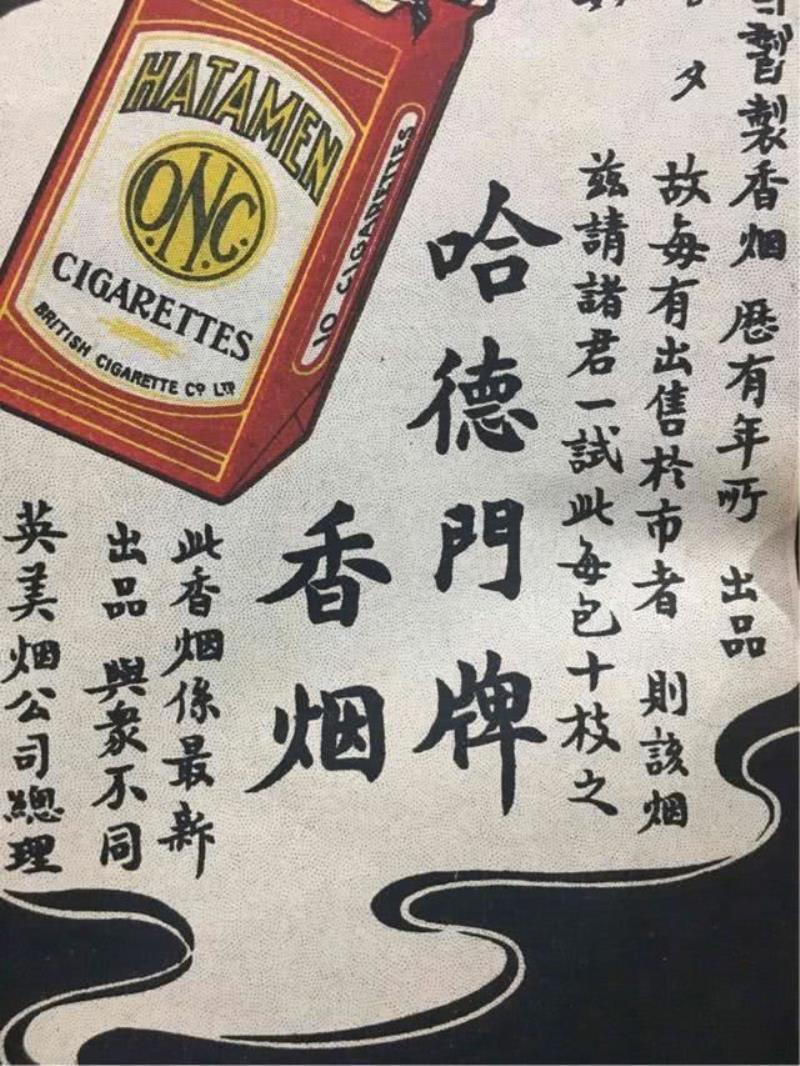 製香烟 歷有年所 出品
故每有出售於市者 則該烟
茲請諸君一試此每包十枝之
哈德門牌
香烟
此香烟係最新
出品 與衆不同
英美烟公司總理
HATAMEN
O.N.C.
CIGARETTES
BRITISH CIGARETTE CO LTD
10 CIGARETTES